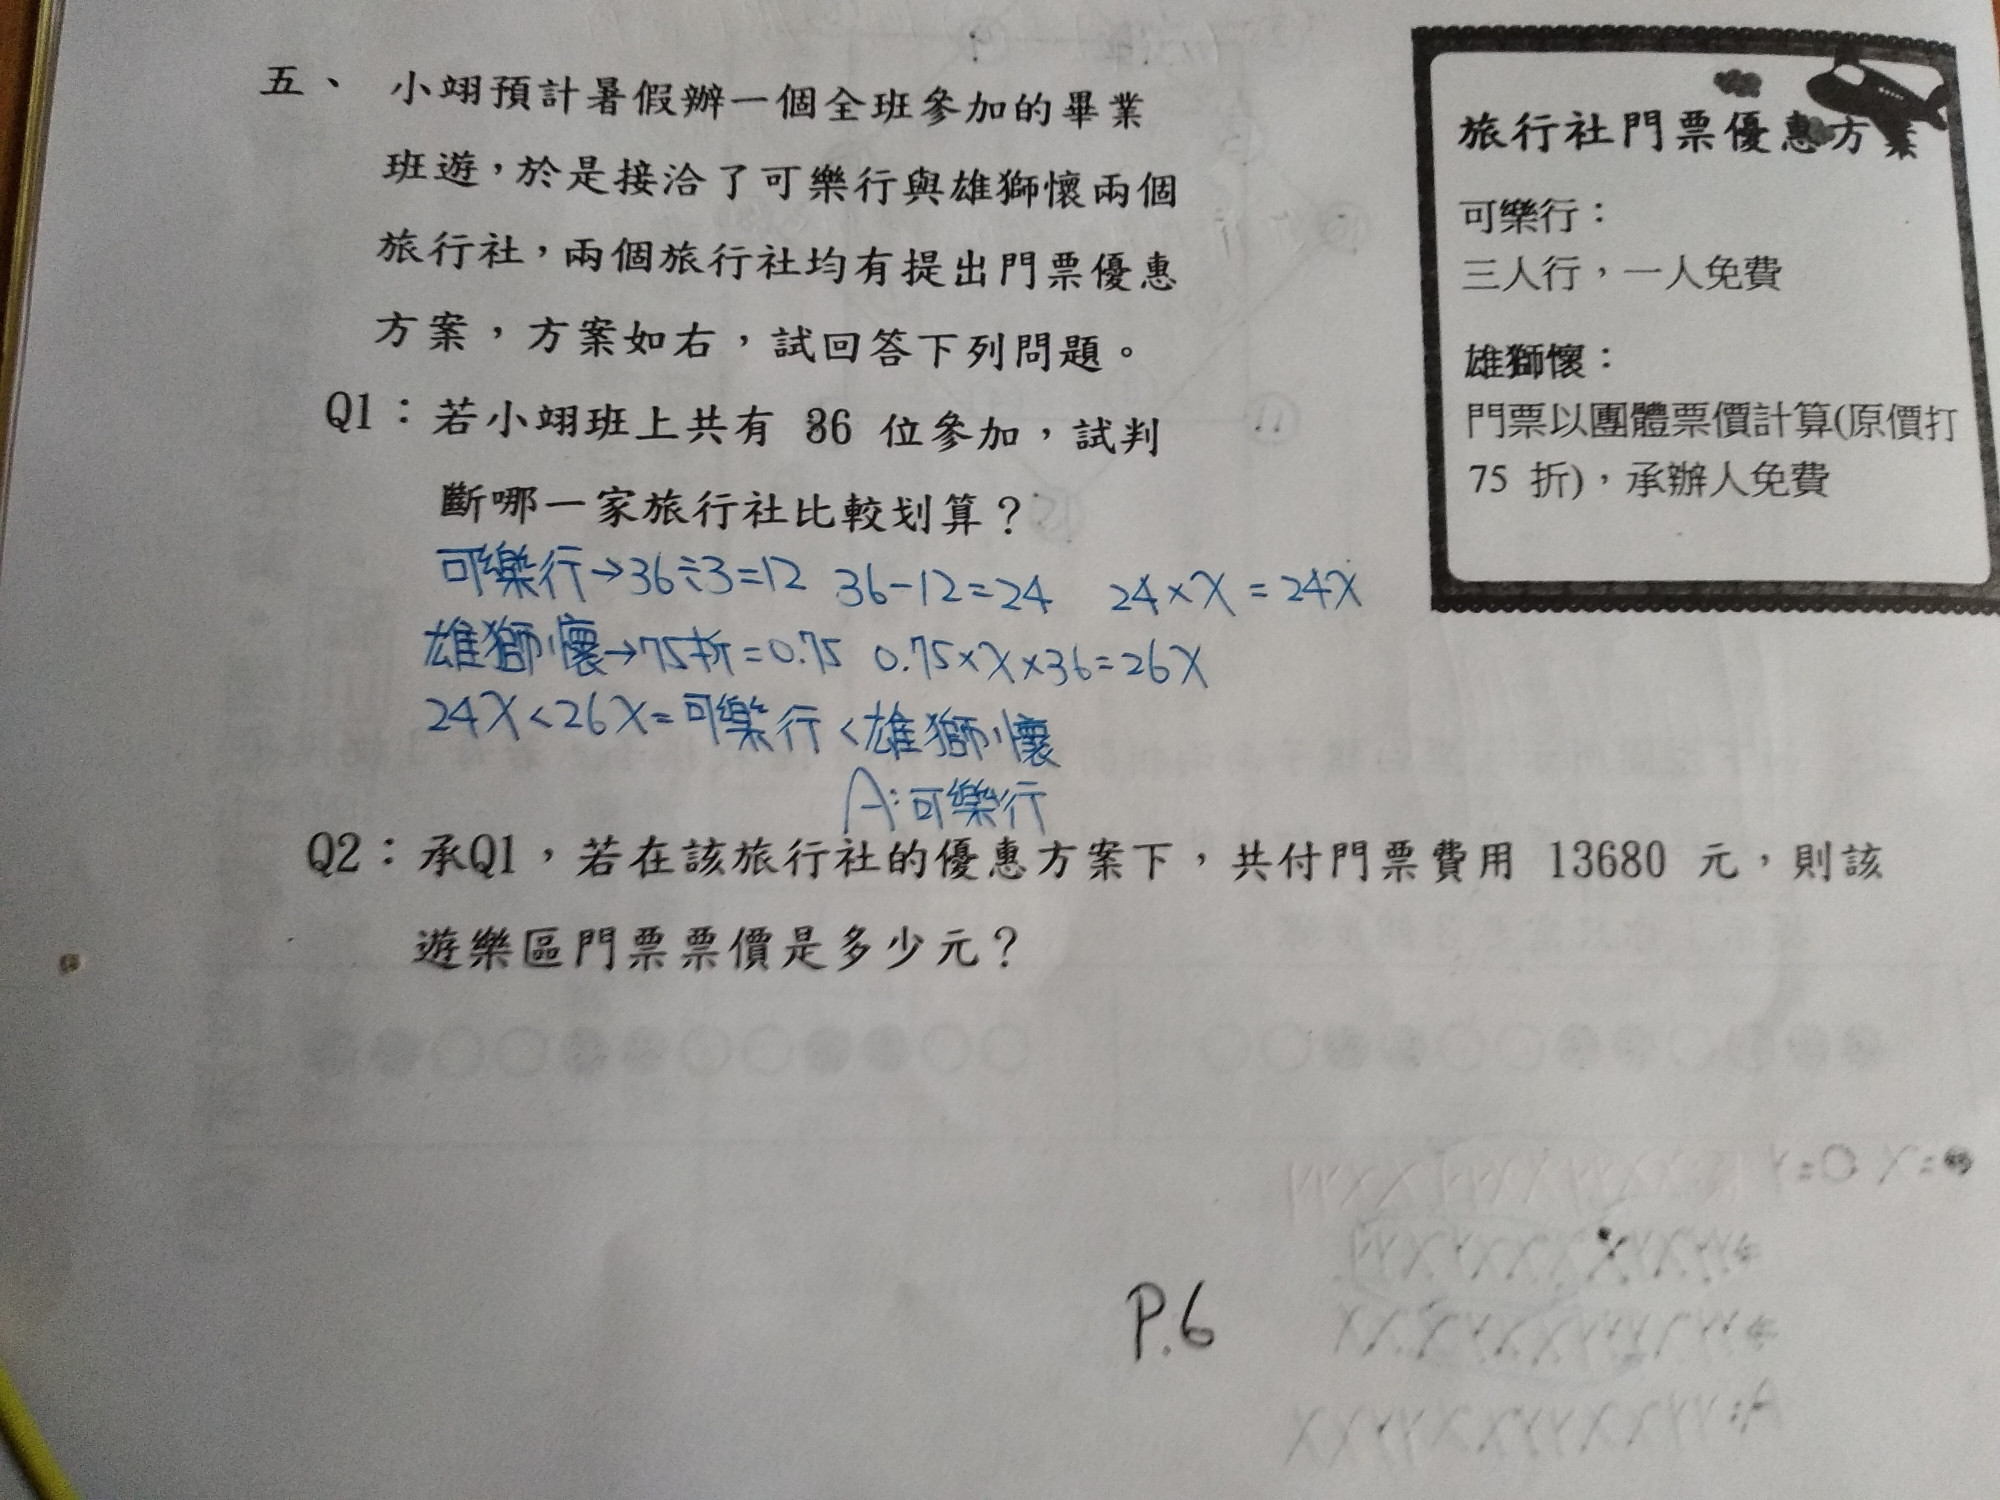 五、 小翊預計暑假辦一個全班參加的畢業
班遊，於是接洽了可樂行與雄獅懷兩個
旅行社，兩個旅行社均有提出門票優惠
方案，方案如右，試回答下列問題。
Q1：若小翊班上共有 36 位參加，試判
斷哪一家旅行社比較划算？
可樂行→36÷3=12 36-12=24 24×X=24X
雄獅懷→75折=0.75 0.75×X×36=26X
24X<26X=可樂行<雄獅懷
A:可樂行
Q2：承Q1，若在該旅行社的優惠方案下，共付門票費用 13680 元，則該
遊樂區門票票價是多少元？
P.6
旅行社門票優惠方案
可樂行：
三人行，一人免費
雄獅懷：
門票以團體票價計算(原價打
75 折)，承辦人免費